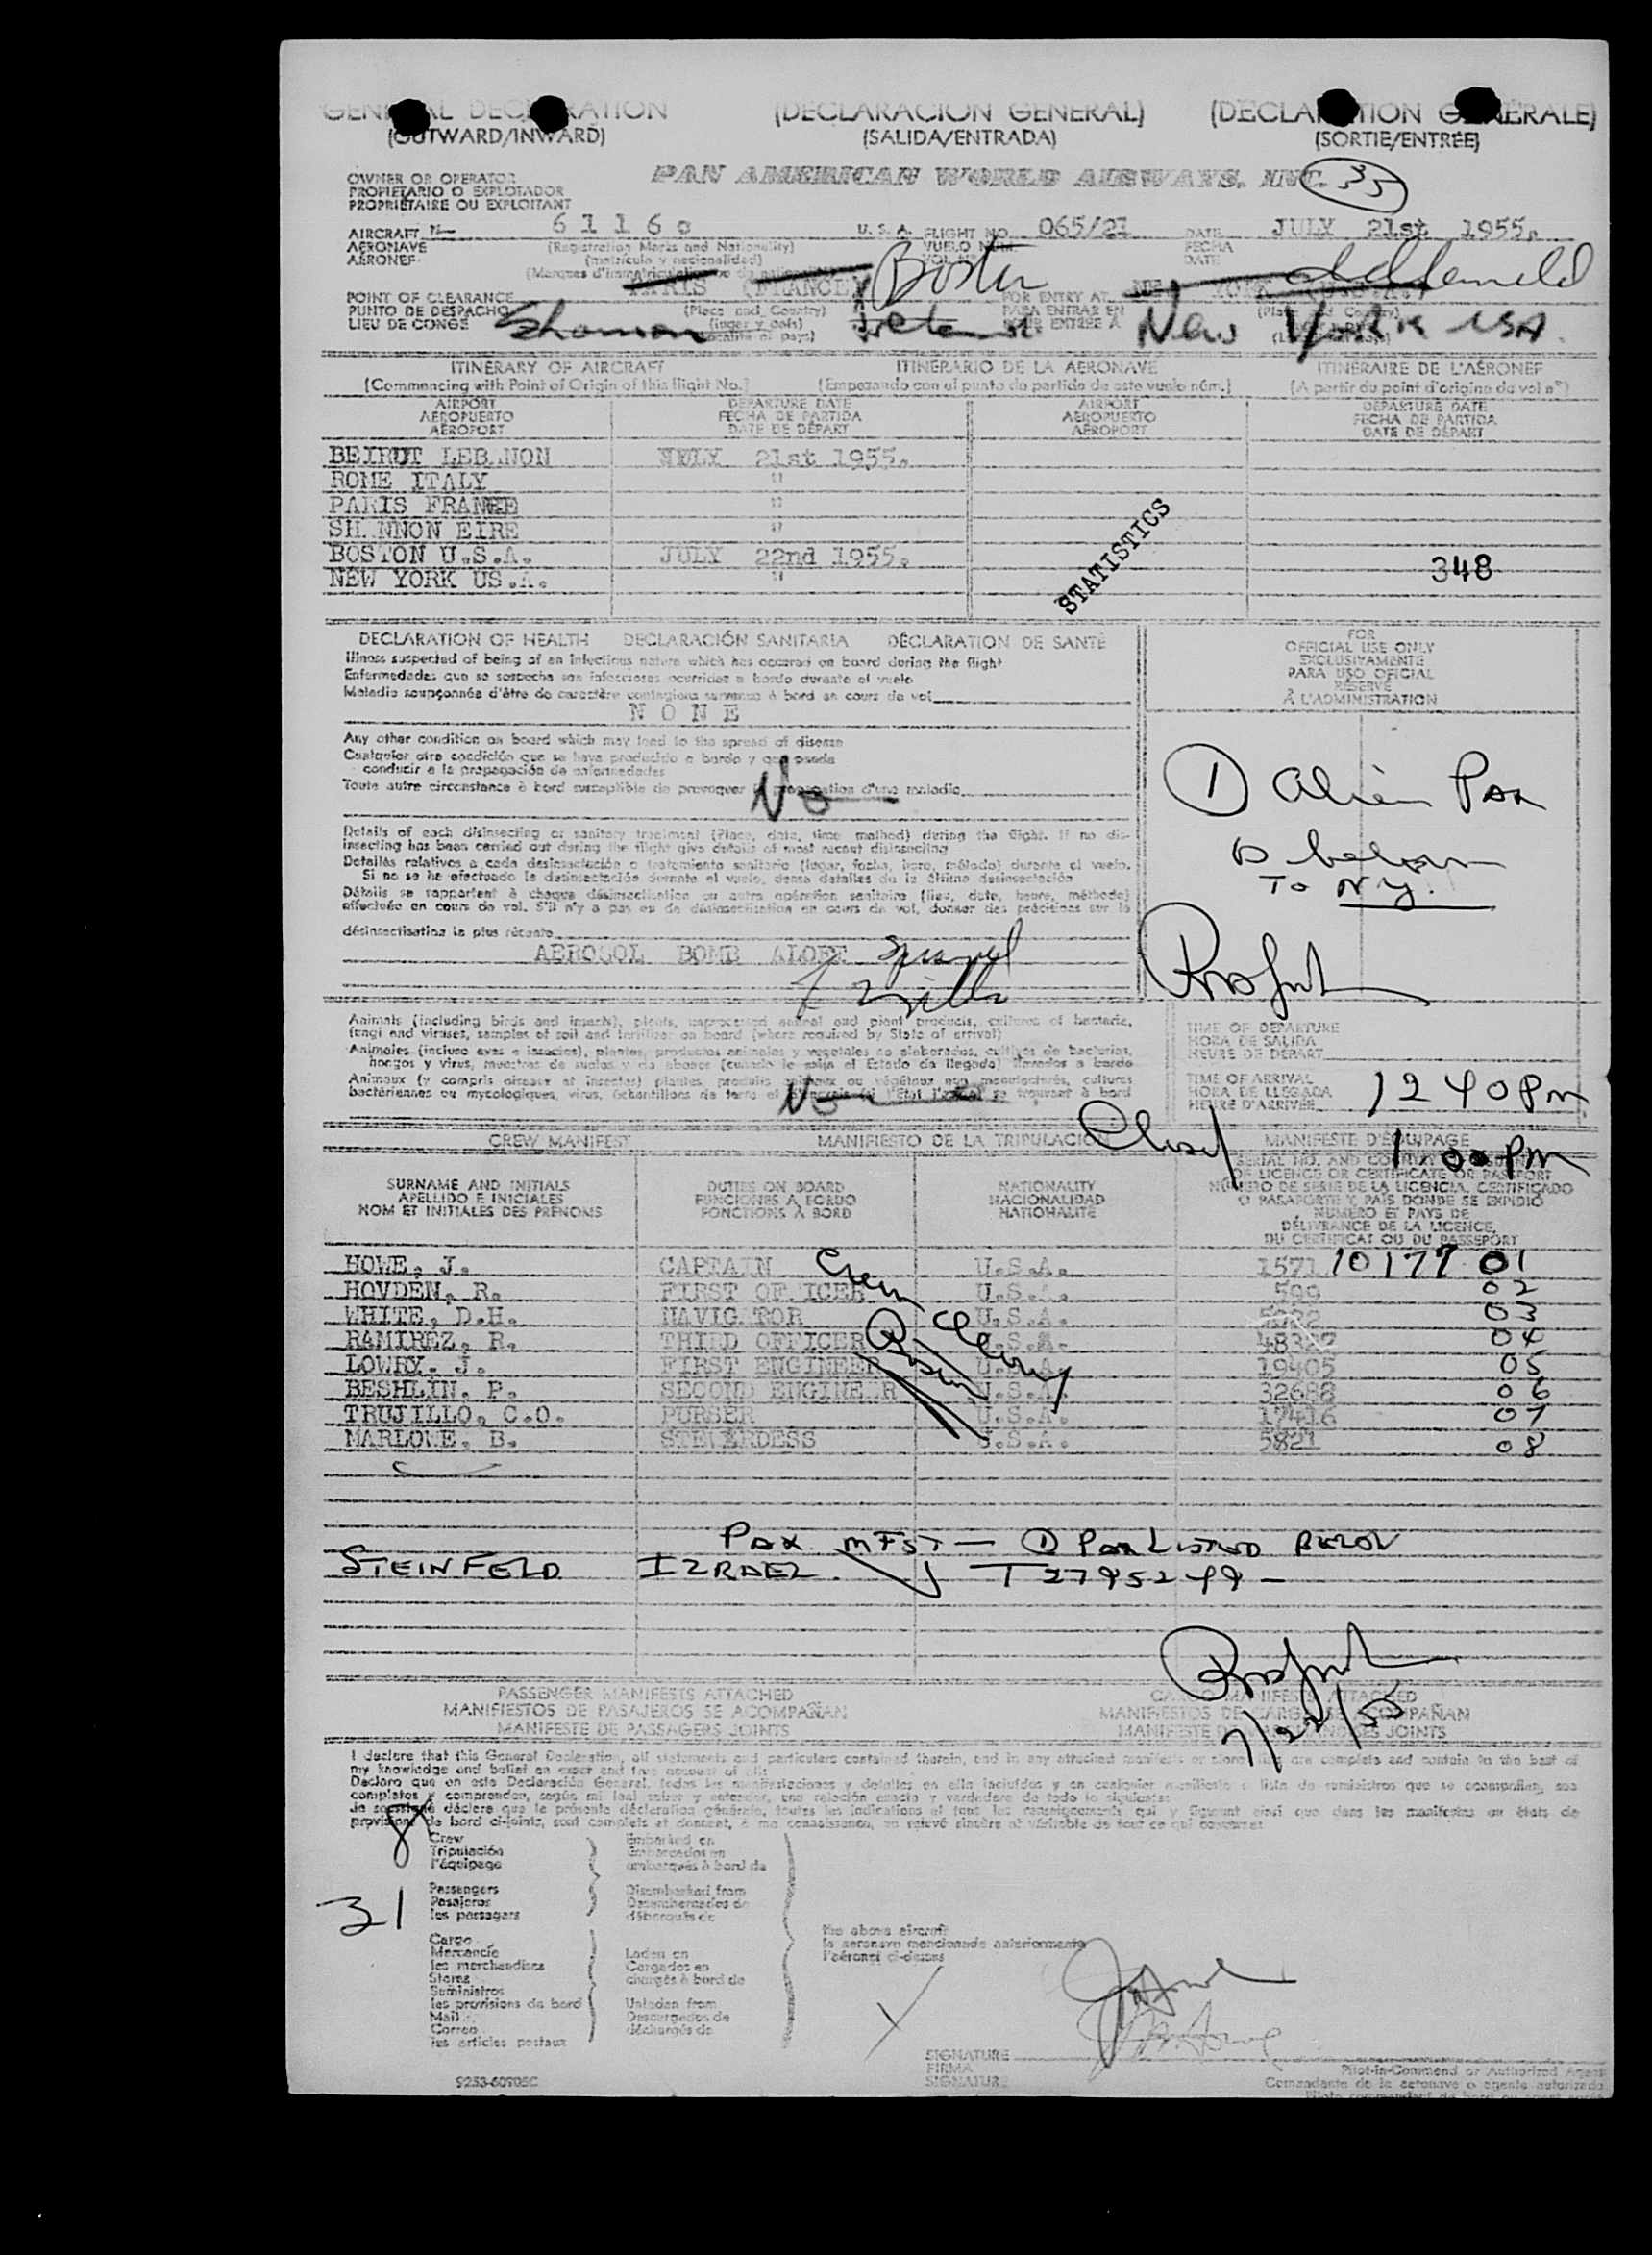 GENERAL DECLARATION (DECLARACION GENERAL) (DECLARATION GENERALE)
(OUTWARD/INWARD) (SALIDA/ENTRADA) (SORTIE/ENTRÉE)
OWNER OR OPERATOR
PROPIETARIO O EXPLOTADOR
PROPRIÉTAIRE OU EXPLOITANT
PAN AMERICAN WORLD AIRWAYS, INC. 35
AIRCRAFT N- 6 1 1 6 U. S. A. FLIGHT NO. 065/21 DATE JULY 21st 1955.
AERONAVE (Registration Marks and Nationality) VUELO NUM. FECHA
AÉRONEF (matrícula y nacionalidad) DATE
PARIS (FRANCE) Boston
POINT OF CLEARANCE (Place and Country) FOR ENTRY AT
PUNTO DE DESPACHO (lugar y país) PARA ENTRAR EN
LIEU DE CONGÉ Shannon Ireland POUR ENTRÉE À New York USA
ITINERARY OF AIRCRAFT ITINERARIO DE LA AERONAVE ITINÉRAIRE DE L'AÉRONEF
(Commencing with Point of Origin of this flight No.) (Empezando con el punto de partida de este vuelo núm.) (A partir du point d'origine du vol nº)
AIRPORT DEPARTURE DATE AIRPORT DEPARTURE DATE
AEROPUERTO FECHA DE PARTIDA AEROPUERTO FECHA DE PARTIDA
AÉROPORT DATE DE DÉPART AÉROPORT DATE DE DÉPART
BEIRUT LEBANON JULY 21st 1955.
ROME ITALY "
PARIS FRANCE "
SHANNON EIRE "
BOSTON U.S.A. JULY 22nd 1955.
NEW YORK US.A. "
STATISTICS
348
DECLARATION OF HEALTH DECLARACIÓN SANITARIA DÉCLARATION DE SANTÉ
Illness suspected of being of an infectious nature which has occurred on board during the flight
Enfermedades que se sospecha son infecciosas ocurridas a bordo durante el vuelo
Maladie soupçonnée d'être de caractère contagieux survenue à bord en cours de vol
N O N E
FOR
OFFICIAL USE ONLY
EXCLUSIVAMENTE
PARA USO OFICIAL
RÉSERVÉ
À L'ADMINISTRATION
Any other condition on board which may lead to the spread of disease
Cualquier otra condición que se haya producido a bordo y que pueda
conducir a la propagación de enfermedades
Toute autre circonstance à bord susceptible de provoquer la propagation d'une maladie
No
① Alien Pax
To NY.
Details of each disinsecting or sanitary treatment (Place, date, time method) during the flight. If no dis-
insecting has been carried out during the flight give details of most recent disinsecting
Detalles relativos a cada desinsectación o tratamiento sanitario (lugar, fecha, hora, método) durante el vuelo.
Si no se ha efectuado la desinsectación durante el vuelo, dense detalles de la última desinsectación
Détails se rapportant à chaque désinsectisation ou autre opération sanitaire (lieu, date, heure, méthode)
effectuée en cours de vol. S'il n'y a pas eu de désinsectisation en cours de vol, donner des précisions sur la
désinsectisation la plus récente
AEROSOL BOMB ALOFT
Animals (including birds and insects), plants, unprocessed animal and plant products, cultures of bacteria,
fungi and viruses, samples of soil and fertilizer on board (where required by State of arrival)
Animales (incluso aves e insectos), plantas, productos animales y vegetales no elaborados, cultivos de bacterias,
hongos y virus, muestras de suelos y de abonos (cuando lo exija el Estado de llegada) llevados a bordo
Animaux (y compris oiseaux et insectes) plantes, produits animaux ou végétaux non manufacturés, cultures
bactériennes ou mycologiques, virus, échantillons de terre
TIME OF DEPARTURE
HORA DE SALIDA
HEURE DE DÉPART
TIME OF ARRIVAL
HORA DE LLEGADA
HEURE D'ARRIVÉE
12 40 Pm
1 00 Pm
CREW MANIFEST MANIFIESTO DE LA TRIPULACION MANIFESTE D'ÉQUIPAGE
SURNAME AND INITIALS DUTIES ON BOARD NATIONALITY SERIAL NO. AND COUNTRY OF ISSUE
APELLIDO E INICIALES FUNCIONES A BORDO NACIONALIDAD OF LICENCE OR CERTIFICATE OR PASSPORT
NOM ET INITIALES DES PRÉNOMS FONCTIONS À BORD NATIONALITÉ NÚMERO DE SERIE DE LA LICENCIA, CERTIFICADO
O PASAPORTE Y PAÍS DONDE SE EXPIDIÓ
NUMÉRO ET PAYS DE
DÉLIVRANCE DE LA LICENCE,
DU CERTIFICAT OU DU PASSEPORT
HOWE, J. CAPTAIN U.S.A. 1571 10177 01
HOVDEN, R. FIRST OFFICER U.S.A. 599 02
WHITE, D.H. NAVIGATOR U.S.A. 03
RAMIREZ, R. THIRD OFFICER U.S.A. 04
LOWRY, J. FIRST ENGINEER U.S.A. 19405 05
BESHLIN, P. SECOND ENGINEER U.S.A. 32688 06
TRUJILLO, C.O. PURSER U.S.A. 17416 07
MARLOWE, B. STEWARDESS U.S.A. 5821 08
Crew
PAX MFST — ① PAX LISTED BELOW
STEINFELD IZRAEL T 2795249 —
7/22/55
PASSENGER MANIFESTS ATTACHED CARGO MANIFESTS ATTACHED
MANIFIESTOS DE PASAJEROS SE ACOMPAÑAN MANIFIESTOS DE CARGA SE ACOMPAÑAN
MANIFESTE DE PASSAGERS JOINTS
I declare that this General Declaration, all statements and particulars contained therein, and in any attached manifests are complete and contain to the best of
my knowledge and belief an exact and true account of all:
8
Crew Embarked on
Tripulación Embarcados en
l'équipage embarqués à bord de
31
Passengers Disembarked from
Pasajeros Desembarcados de
les passagers débarqués de
Cargo
Mercancía Laden on
les marchandises Cargados en
Stores chargés à bord de
Suministros
les provisions de bord Unladen from
Mail Descargados de
Correo déchargés de
les articles postaux
the above aircraft
la aeronave mencionada anteriormente
l'aéronef ci-dessus
SIGNATURE
FIRMA
SIGNATURE
Pilot-in-Command or Authorized Agent
Comandante de la aeronave o agente autorizado